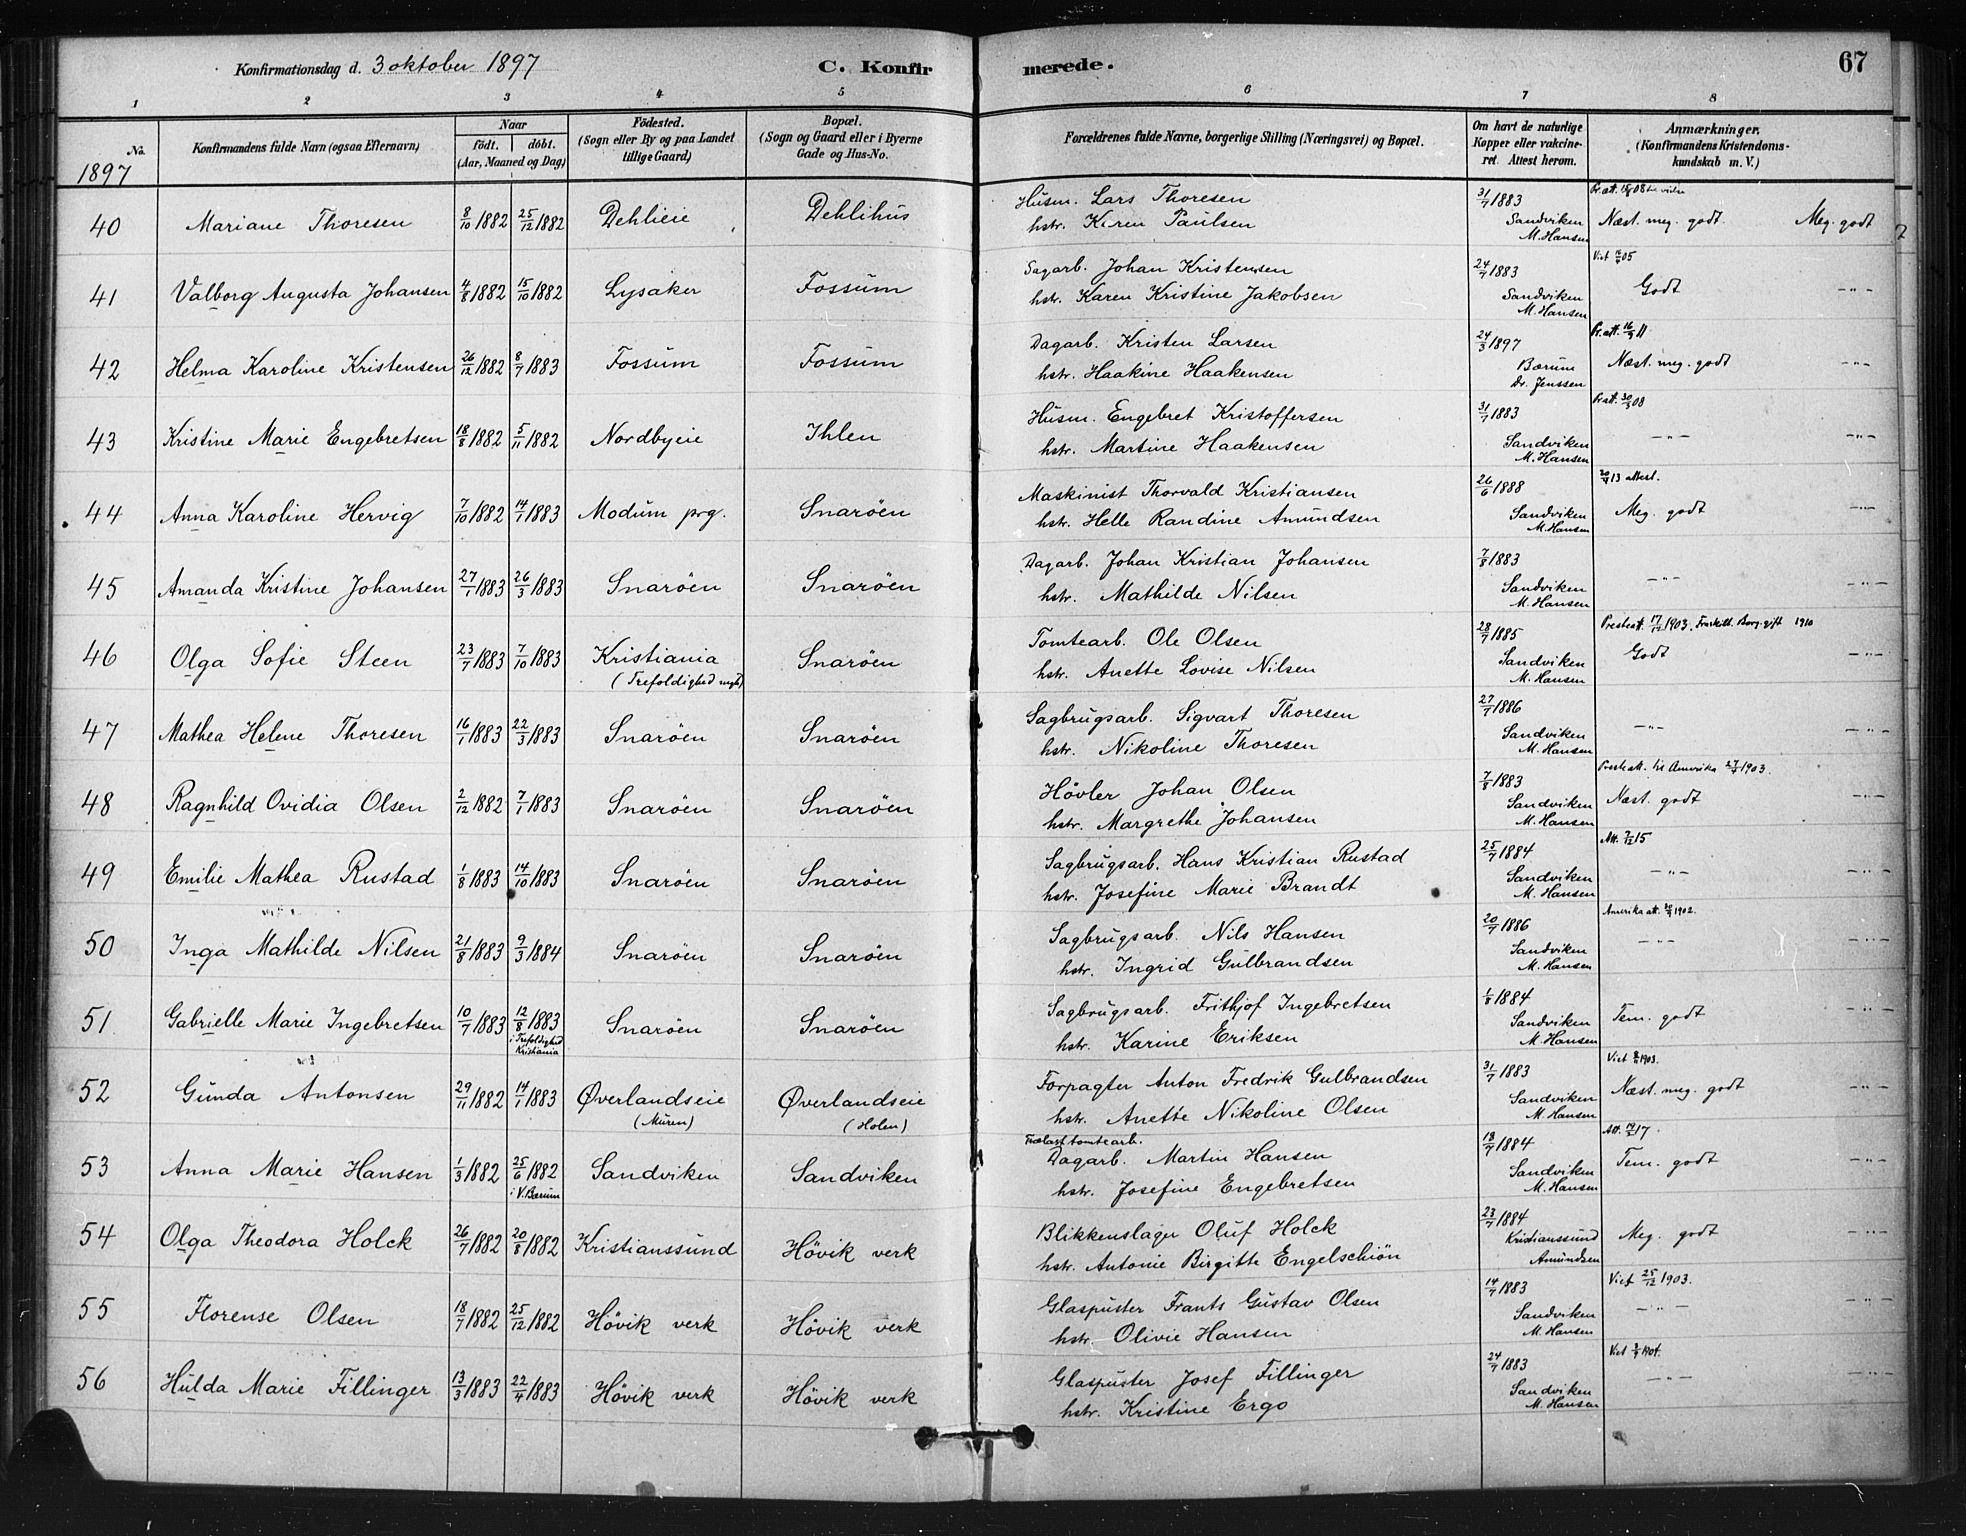 Konfirmationsdag d. 3 oktober 1897 C. Konfirmerede. 67
1 2 3 4 5 6 7 8
No. Konfirmandens fulde Navn (ogsaa Efternavn) Naar født. døbt. (Aar, Maaned og Dag) Fødested. (Sogn eller By og paa Landet tillige Gaard) Bopæl. (Sogn og Gaard eller i Byerne Gade og Hus-No. Forældrenes fulde Navne, borgerlige Stilling (Næringsvei) og Bopæl. Om havt de naturlige Kopper eller vakcineret. Attest herom. Anmærkninger. (Konfirmandens Kristendomskundskab m. V.)
1897
40 Mariane Thoresen 8/10 1882 25/12 1882 Dehlieie Dehlihus Husm. Lars Thoresen 31/7 1883
hstr. Karen Paulsen Sandviken M. Hansen Næst. meg. godt. Meg. godt
41 Valborg Augusta Johansen 4/8 1882 15/10 1882 Lysaker Fossum Sagarb. Johan Kristensen 24/7 1883
hstr. Karen Kristine Jakobsen Sandviken M. Hansen Godt — " —
42 Helma Karoline Kristensen 26/12 1882 8/7 1883 Fossum Fossum Dagarb. Kristen Larsen 24/3 1897 Pr. att. 16/9 11
hstr. Haakine Haakensen Bærum Dr. Jenssen Næst. meg. godt — " —
43 Kristine Marie Engebretsen 18/8 1882 5/11 1882 Nordbyeie Ihlen Husm. Engebret Kristoffersen 31/7 1883 Pr att. 30/3 08
hstr. Martine Haakensen Sandviken M. Hansen — " — — " —
44 Anna Karoline Hervig 7/10 1882 14/1 1883 Modum prg. Snarøen Maskinist Thorvald Kristiansen 26/6 1888 20/4 13 attest.
hstr. Helle Randine Amundsen Sandviken M. Hansen Meg. godt — " —
45 Amanda Kristine Johansen 27/1 1883 26/3 1883 Snarøen Snarøen Dagarb. Johan Kristian Johansen 7/8 1883
hstr. Mathilde Nilsen Sandviken M. Hansen — " — — " —
46 Olga Sofie Steen 23/7 1883 7/10 1883 Kristiania Snarøen Tomtearb. Ole Olsen 28/7 1885 1910
(Trefoldighed mgh) hstr. Anette Lovise Nilsen Sandviken M. Hansen Godt — " —
47 Mathea Helene Thoresen 16/1 1883 22/3 1883 Snarøen Snarøen Sagbrugsarb. Sigvart Thoresen 27/7 1886
hstr. Nikoline Thoresen Sandviken M. Hansen — " — — " —
48 Ragnhild Ovidia Olsen 2/12 1882 7/1 1883 Snarøen Snarøen Høvler Johan Olsen 7/8 1883 Presteatt. til Amerika 27/4 1903.
hstr. Margrethe Johansen Sandviken M. Hansen Næst. godt — " —
49 Emilie Mathea Rustad 1/8 1883 14/10 1883 Snarøen Snarøen Sagbrugsarb. Hans Kristian Rustad 25/7 1884 Att. 7/12 15
hstr. Josefine Marie Brandt Sandviken M. Hansen — " — — " —
50 Inga Mathilde Nilsen 21/8 1883 9/3 1884 Snarøen Snarøen Sagbrugsarb. Nils Hansen 20/7 1886 Amerika att. 1902.
hstr. Ingrid Gulbrandsen Sandviken M. Hansen — " — — " —
51 Gabrielle Marie Ingebretsen 10/7 1883 12/8 1883 Snarøen Snarøen Sagbrugsarb. Frithjof Ingebretsen 1/8 1884
i Trefoldighed Kristiania hstr. Karine Eriksen Sandviken M. Hansen Tem. godt — " —
52 Gunda Antonsen 29/11 1882 14/1 1883 Øverlandseie Øverlandseie Forpagter Anton Fredrik Gulbrandsen 31/7 1883 Viet 1903.
(Muren) (Holen) hstr. Anette Nikoline Olsen Sandviken M. Hansen Næst. meg. godt — " —
53 Anna Marie Hansen 1/3 1882 25/6 1882 Sandviken Sandviken Trælasttomtearb. Dagarb. Martin Hansen 18/7 1884
i V. Bærum hstr. Josefine Engebretsen Sandviken M. Hansen Tem. godt — " —
54 Olga Theodora Holck 26/7 1882 20/8 1882 Kristianssund Høvik verk Blikkenslager Oluf Holck 23/7 1884
hstr. Antonie Birgitte Engelschiøn Kristianssund Amundsen Meg. godt — " —
55 Florense Olsen 18/7 1882 25/12 1882 Høvik verk Høvik verk Glaspuster Frants Gustav Olsen 14/7 1883 Viet 25/12 1903.
hstr. Olivie Hansen Sandviken M. Hansen — " — — " —
56 Hulda Marie Fillinger 13/3 1883 22/4 1883 Høvik verk Høvik verk Glaspuster Josef Fillinger 24/7 1883
hstr. Kristine Ergo Sandviken M. Hansen — " — — " —